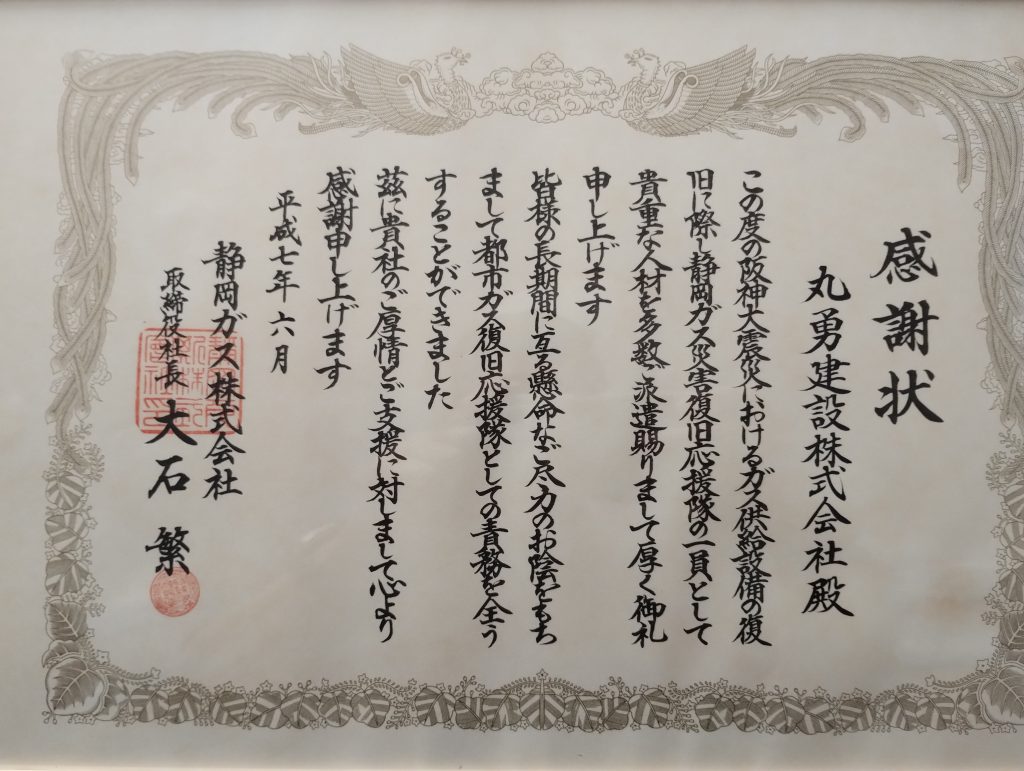 感謝状
丸勇建設株式会社殿
この度の阪神大震災におけるガス供給設備の復
旧に際し静岡ガス災害復旧応援隊の一員として
貴重な人材を多数ご派遣賜りまして厚く御礼
申し上げます
皆様の長期間に亙る懸命なご尽力のお陰をもち
まして都市ガス復旧応援隊としての責務を全う
することができました
茲に貴社のご厚情とご支援に対しまして心より
感謝申し上げます
平成七年六月
静岡ガス株式会社
取締役社長 大石繁